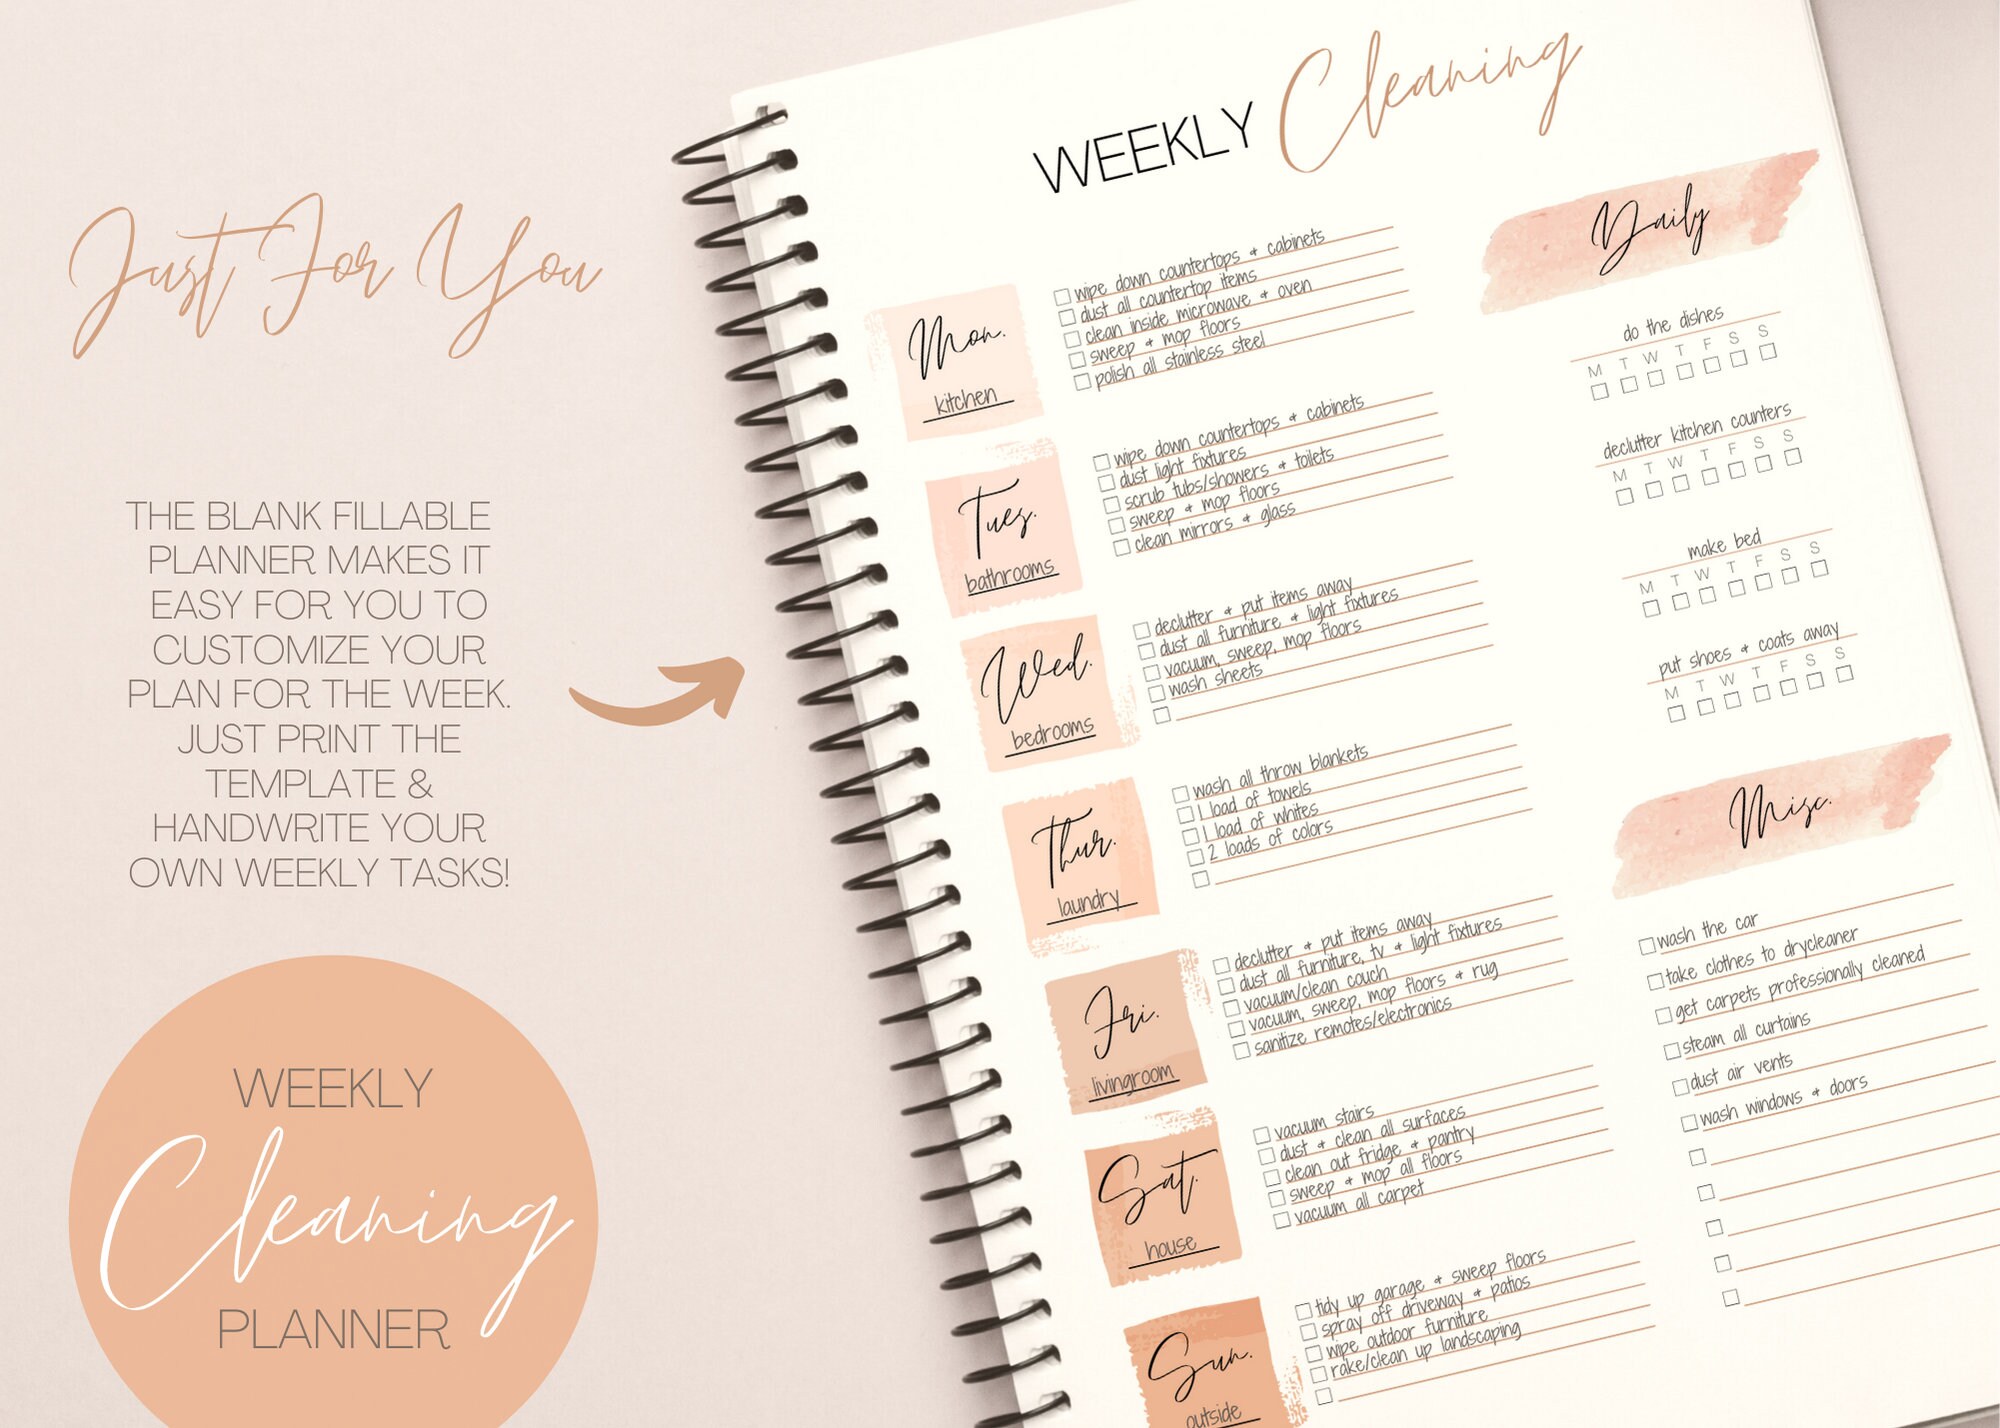 Just For You
THE BLANK FILLABLE
PLANNER MAKES IT
EASY FOR YOU TO
CUSTOMIZE YOUR
PLAN FOR THE WEEK.
JUST PRINT THE
TEMPLATE &
HANDWRITE YOUR
OWN WEEKLY TASKS!
WEEKLY
Cleaning
PLANNER
WEEKLY Cleaning
Mon.
kitchen
wipe down countertops & cabinets
dust all countertop items
clean inside microwave & oven
sweep & mop floors
polish all stainless steel
Tues.
bathrooms
wipe down countertops & cabinets
dust light fixtures
scrub tubs/showers & toilets
sweep & mop floors
clean mirrors & glass
Wed.
bedrooms
declutter & put items away
dust all furniture & light fixtures
vacuum, sweep, mop floors
wash sheets
Thur.
laundry
wash all throw blankets
1 load of towels
1 load of whites
2 loads of colors
Fri.
livingroom
declutter & put items away
dust all furniture, tv & light fixtures
vacuum/clean couch
vacuum, sweep, mop floors & rug
sanitize remotes/electronics
Sat.
house
vacuum stairs
dust & clean all surfaces
clean out fridge & pantry
sweep & mop all floors
vacuum all carpet
Sun.
outside
tidy up garage & sweep floors
spray off driveway & patios
wipe outdoor furniture
rake/clean up landscaping
Daily
do the dishes
M T W T F S S
declutter kitchen counters
M T W T F S S
make bed
M T W T F S S
put shoes & coats away
M T W T F S S
Misc.
wash the car
take clothes to drycleaner
get carpets professionally cleaned
steam all curtains
dust air vents
wash windows & doors